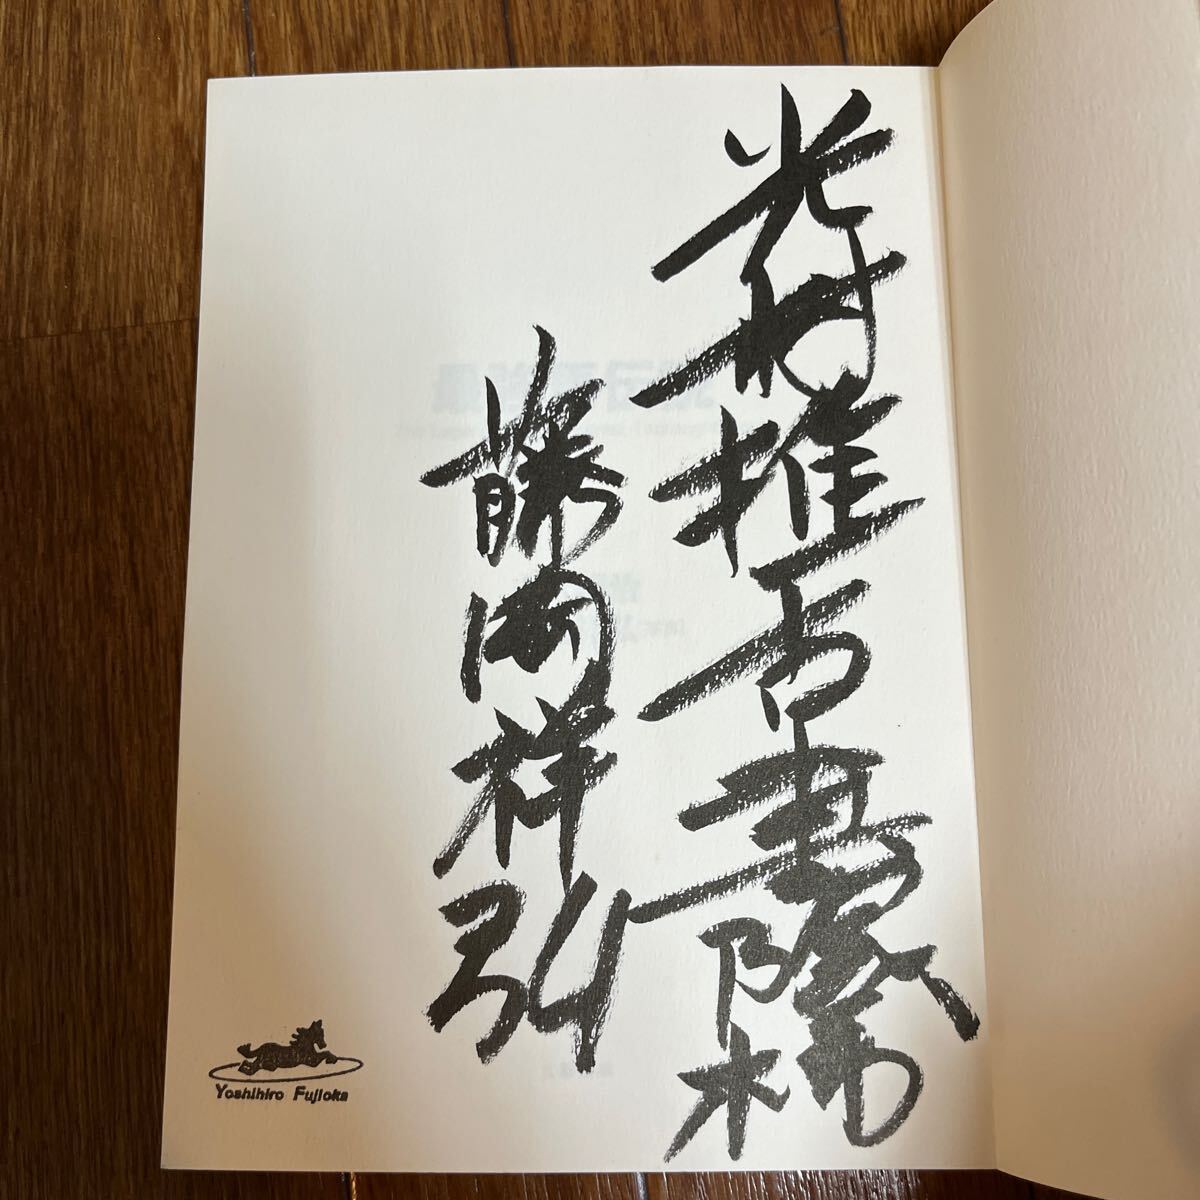 光村推古書院様
藤岡祥弘
Yoshihiro Fujioka